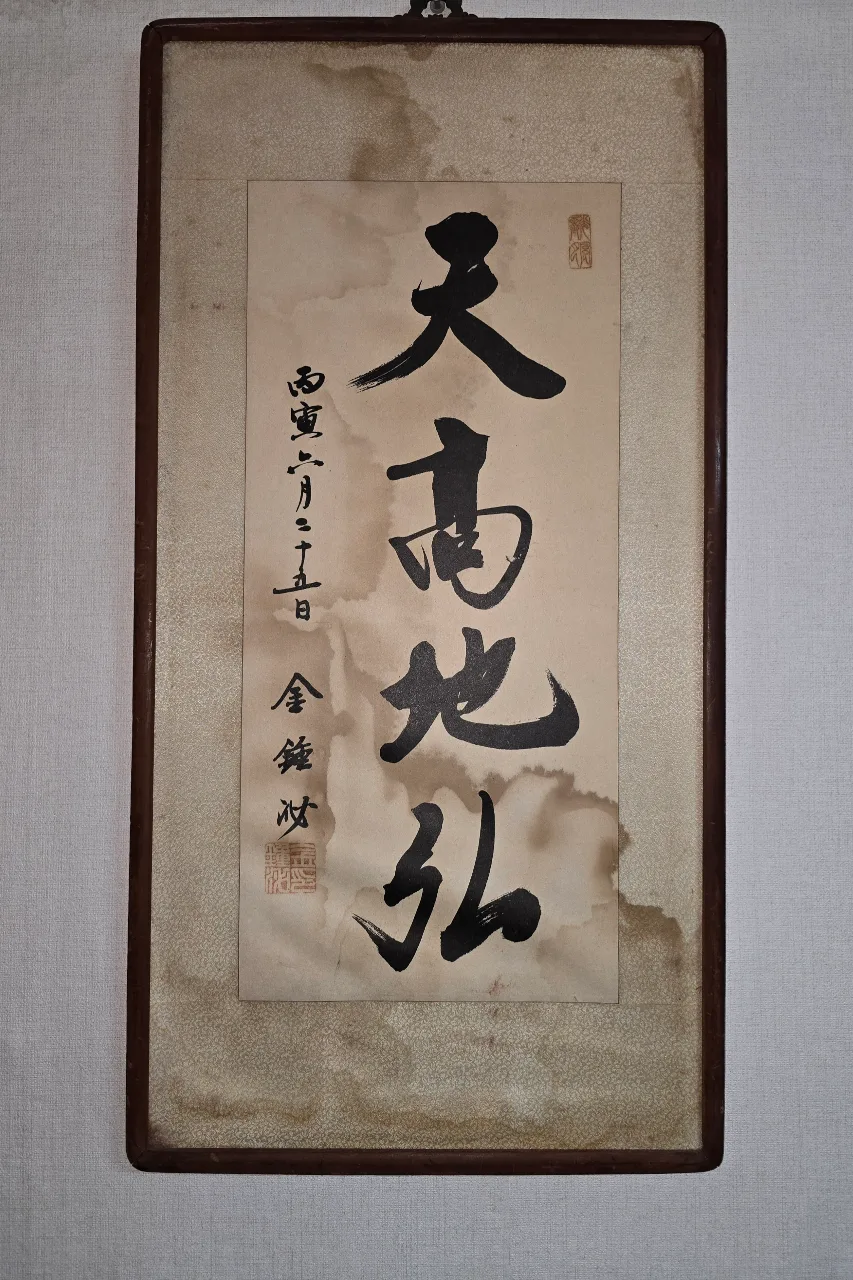 天高地弘
丙寅六月二十五日
金鍾泌